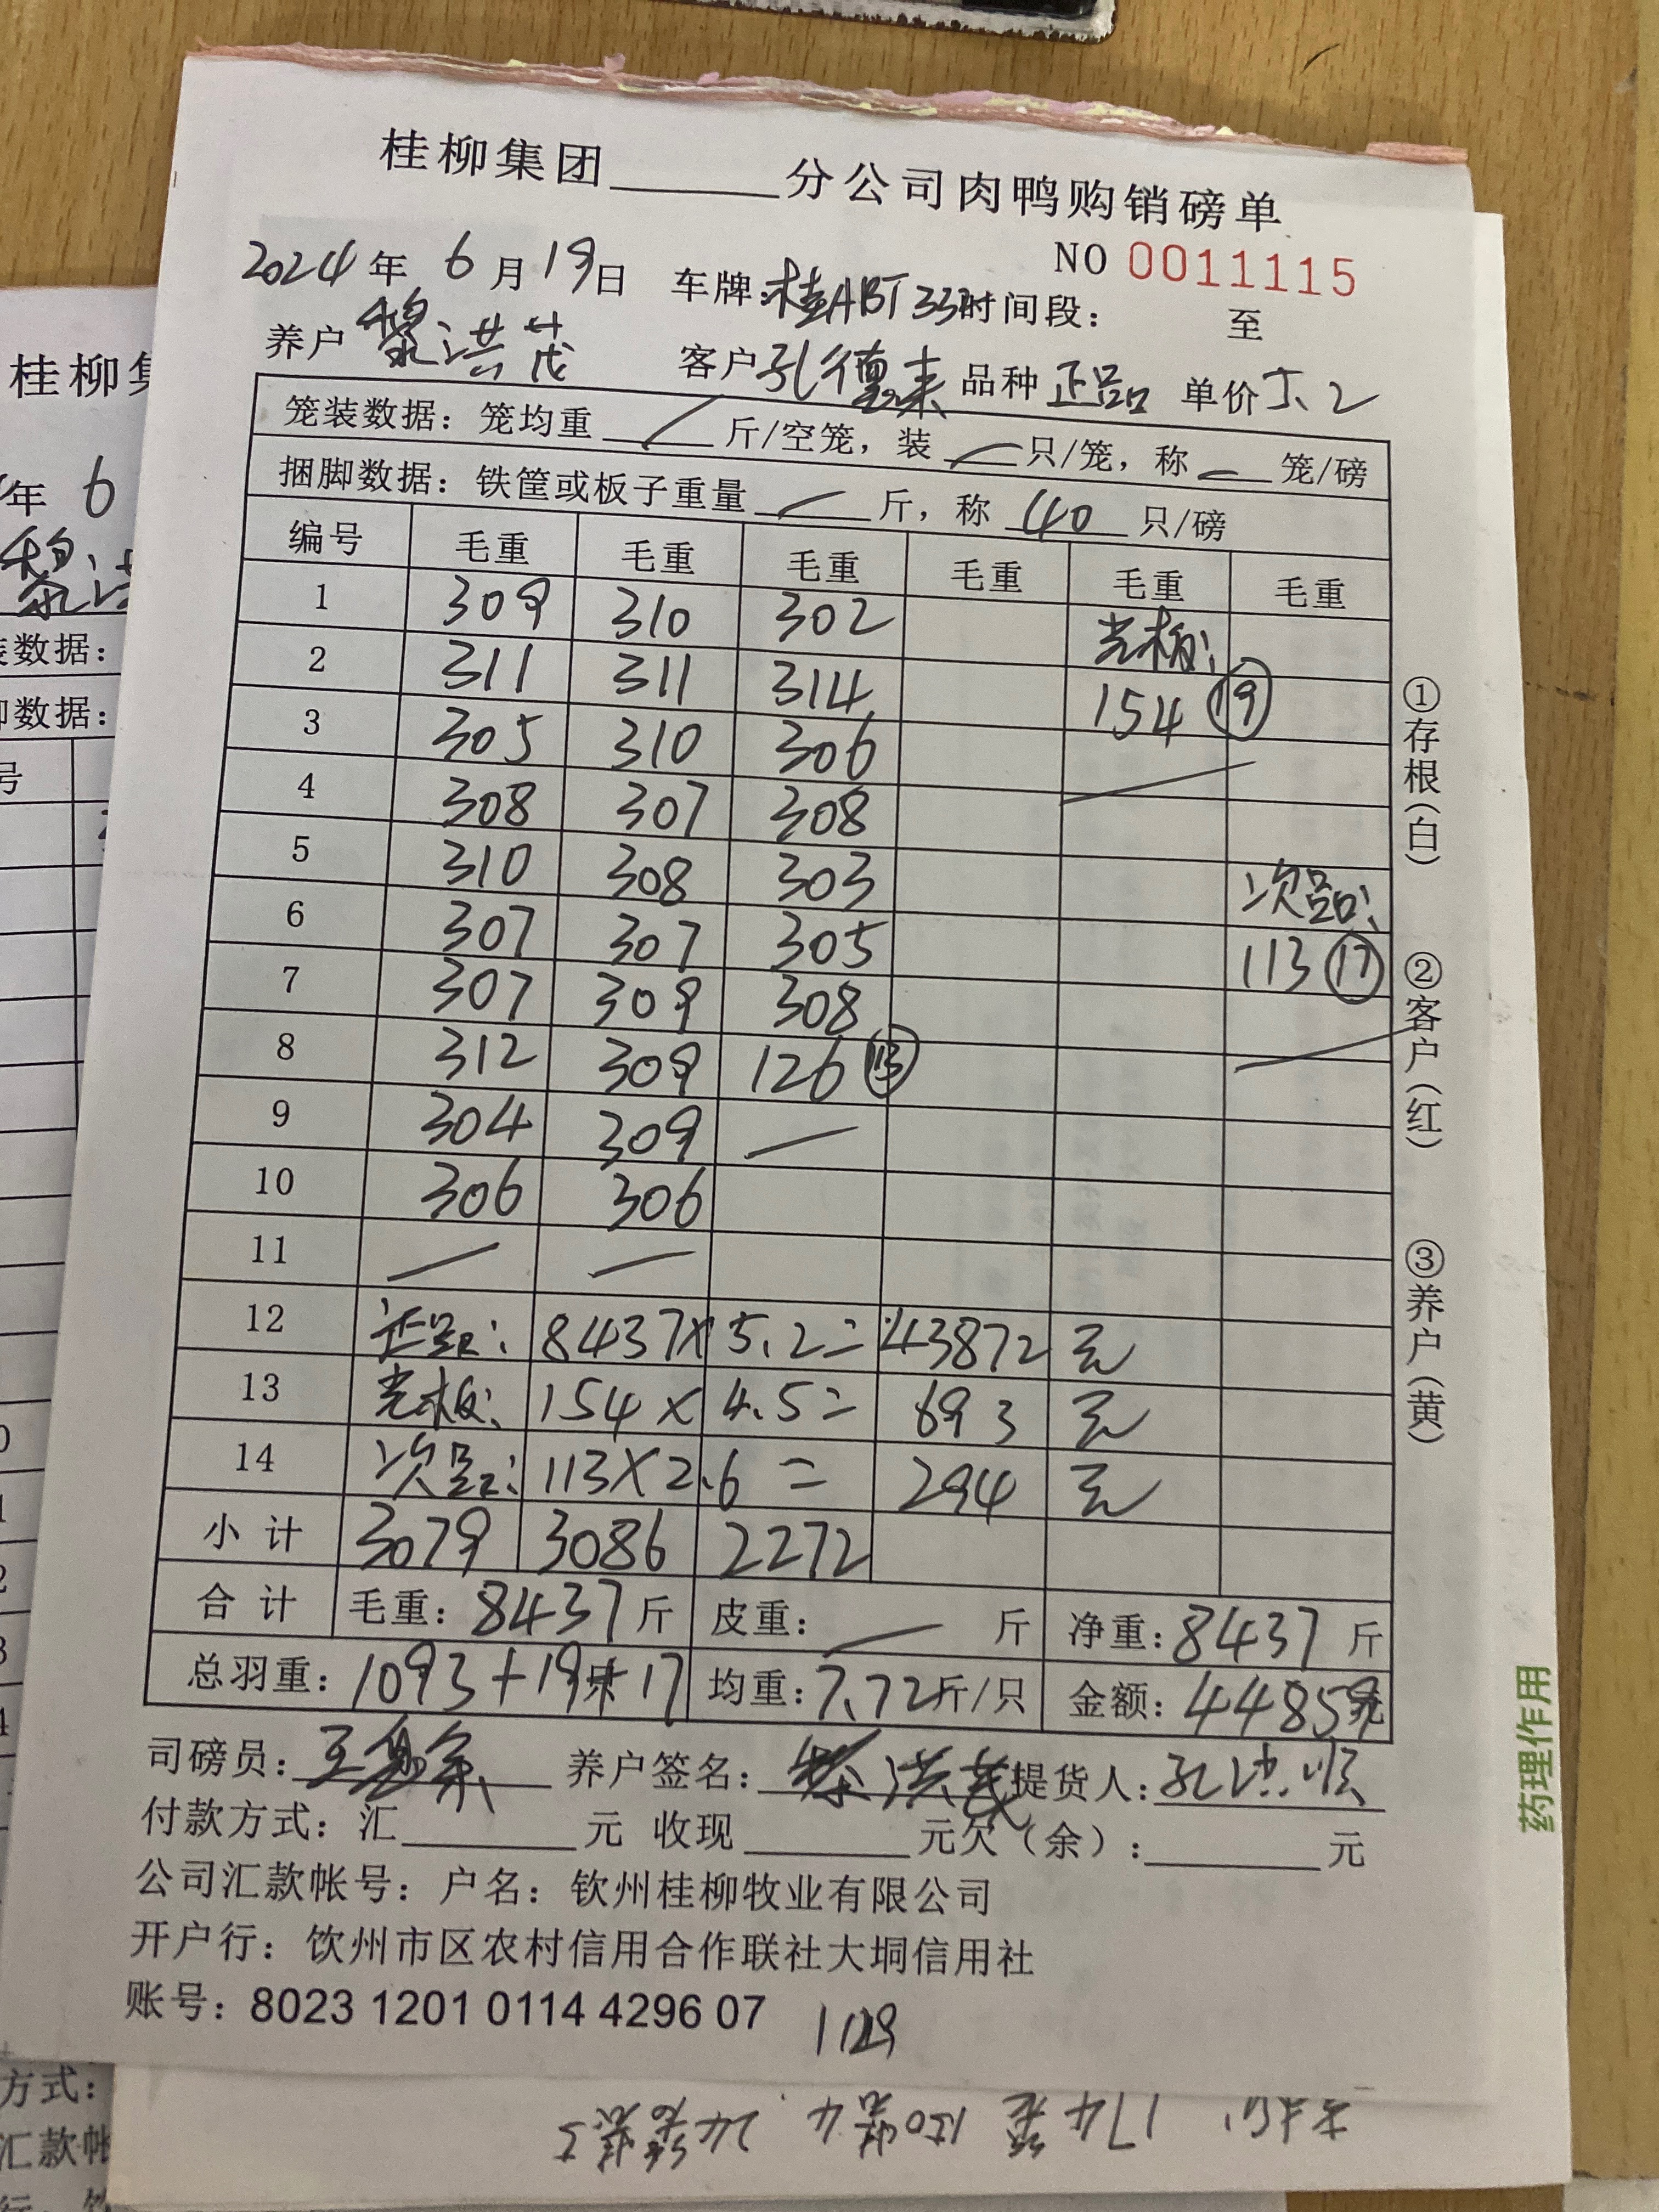 桂柳集团______分公司肉鸭购销磅单
NO 0011115
2024年 6月19日 车牌:桂ABT333时间段: 至
养户 黎洪茂 客户 孔德来 品种 正品 单价 5.2
笼装数据: 笼均重 / 斤/空笼, 装 / 只/笼, 称 / 笼/磅
捆脚数据: 铁筐或板子重量 / 斤, 称 40 只/磅
编号 毛重 毛重 毛重 毛重 毛重 毛重
1 309 310 302 光板:
2 311 311 314 154 ⑲
3 305 310 306
4 308 307 308
5 310 308 303 次品:
6 307 307 305 113 ⑰
7 307 309 308
8 312 309 126 ⑬
9 304 309 /
10 306 306
11 / /
12 正品: 8437×5.2=43872元
13 光板: 154×4.5=693元
14 次品: 113×2.6=294元
小计 3079 3086 2272
合计 毛重: 8437斤 皮重: / 斤 净重: 8437斤
总羽重: 1093+19+17 均重: 7.72斤/只 金额: 44859元
司磅员: 养户签名: 黎洪茂 提货人:
付款方式: 汇______元 收现______元欠(余):______元
公司汇款帐号: 户名: 钦州桂柳牧业有限公司
开户行: 钦州市区农村信用合作联社大垌信用社
账号: 8023 1201 0114 4296 07
1129
①存根(白) ②客户(红) ③养户(黄)
药理作用
桂柳集
年 6
黎洪
装数据:
脚数据:
号
方式:
汇款帐